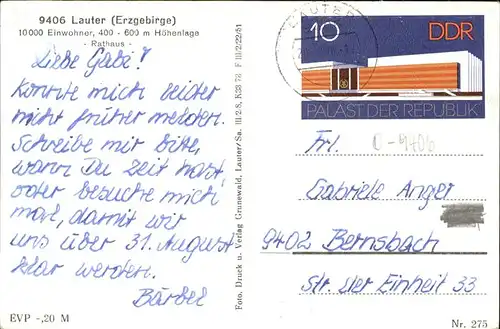 9406 Lauter (Erzgebirge)
10000 Einwohner, 400 - 600 m Höhenlage
- Rathaus -
Liebe Gabe!
Konnte mich leider
nicht früher melden.
Schreibe mir bitte,
wann Du Zeit hast
oder besuche mich
mal, damit wir
uns über 31. August
klar werden.
Bärbel
EVP -,20 M
Foto, Druck u. Verlag Grunewald, Lauter/Sa. III/2/8,
LAUTER
10
DDR
PALAST DER REPUBLIK
Frl.
0-9406
Gabriele Anger
9402 Bernsbach
Str. der Einheit 33
Nr. 275